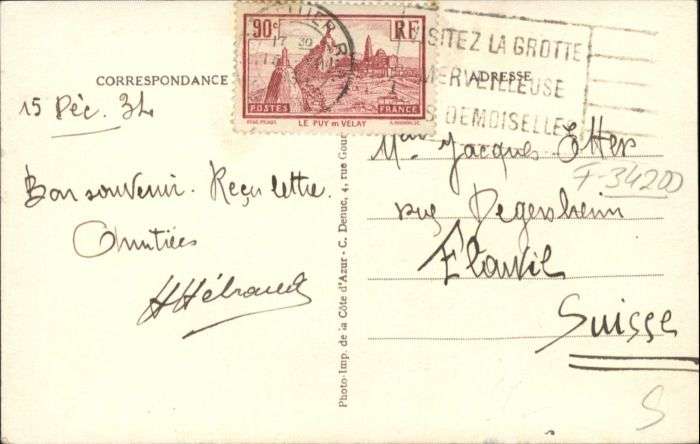 CORRESPONDANCE
ADRESSE
90c RF
POSTES FRANCE
LE PUY EN VELAY
ISITEZ LA GROTTE
MERVEILLEUSE
S DEMOISELLES
15 Déc. 34
Bon souvenir. Reçu lettre.
Amitiés
HHébrard
Photo-Imp. de la Côte d'Azur - C. Denuc, 4, rue Gou
Jacques Otter
F-34200
rue Degersheim
Flawil
Suisse
S